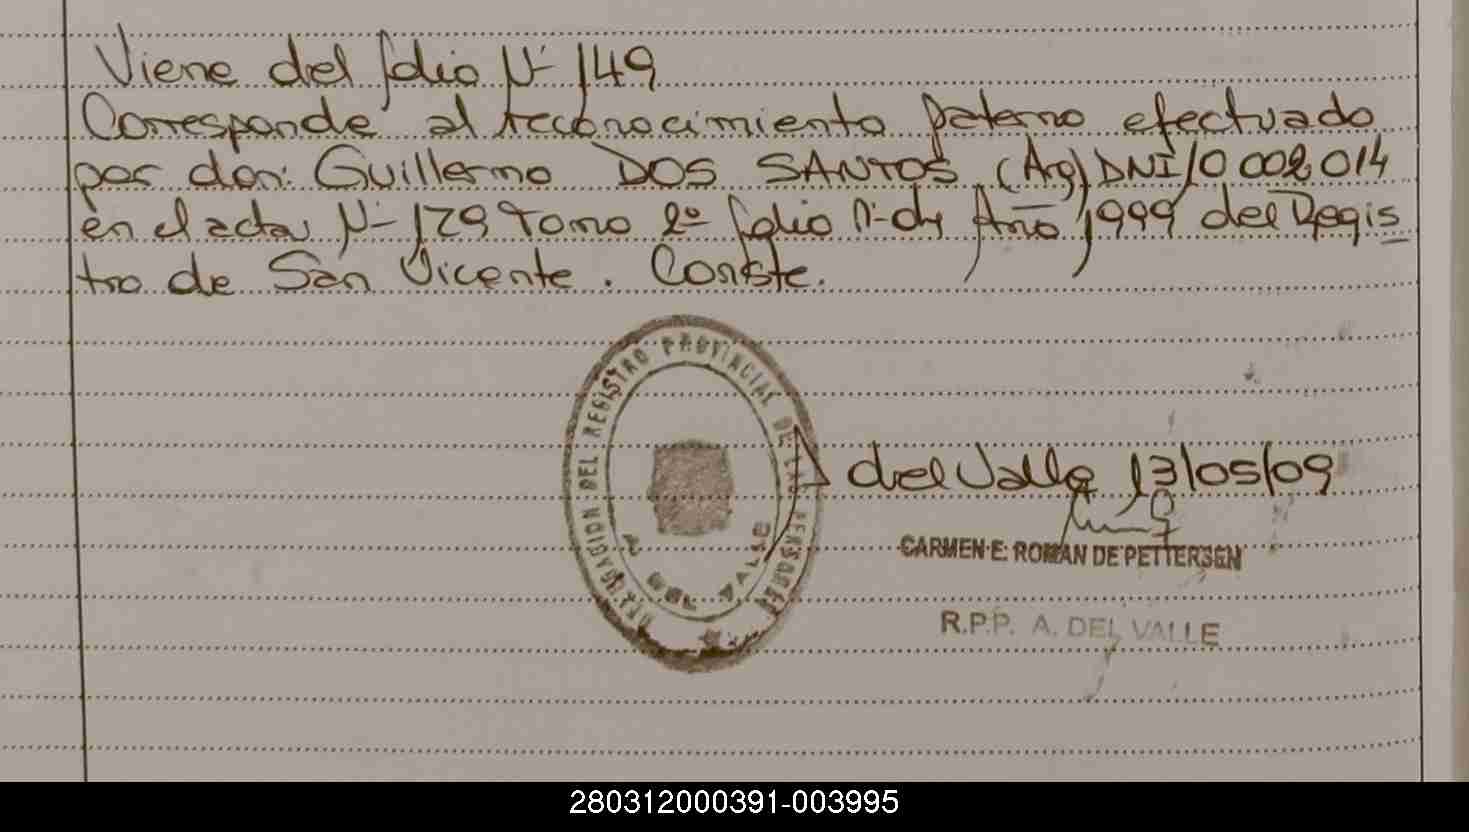 Viene del folio Nº 149
Corresponde al reconocimiento paterno efectuado
por don: Guillermo DOS SANTOS (Arg) DNI 10 002 014
en el acta Nº 129 Tomo 2º folio Año 1999 del Regis
tro de San Vicente. Conste.
DELEGACION DEL REGISTRO PROVINCIAL DE LAS PERSONAS
A. DEL VALLE
A del Valle 13/05/09
CARMEN E. ROMAN DE PETTERSEN
R.P.P. A. DEL VALLE
280312000391-003995